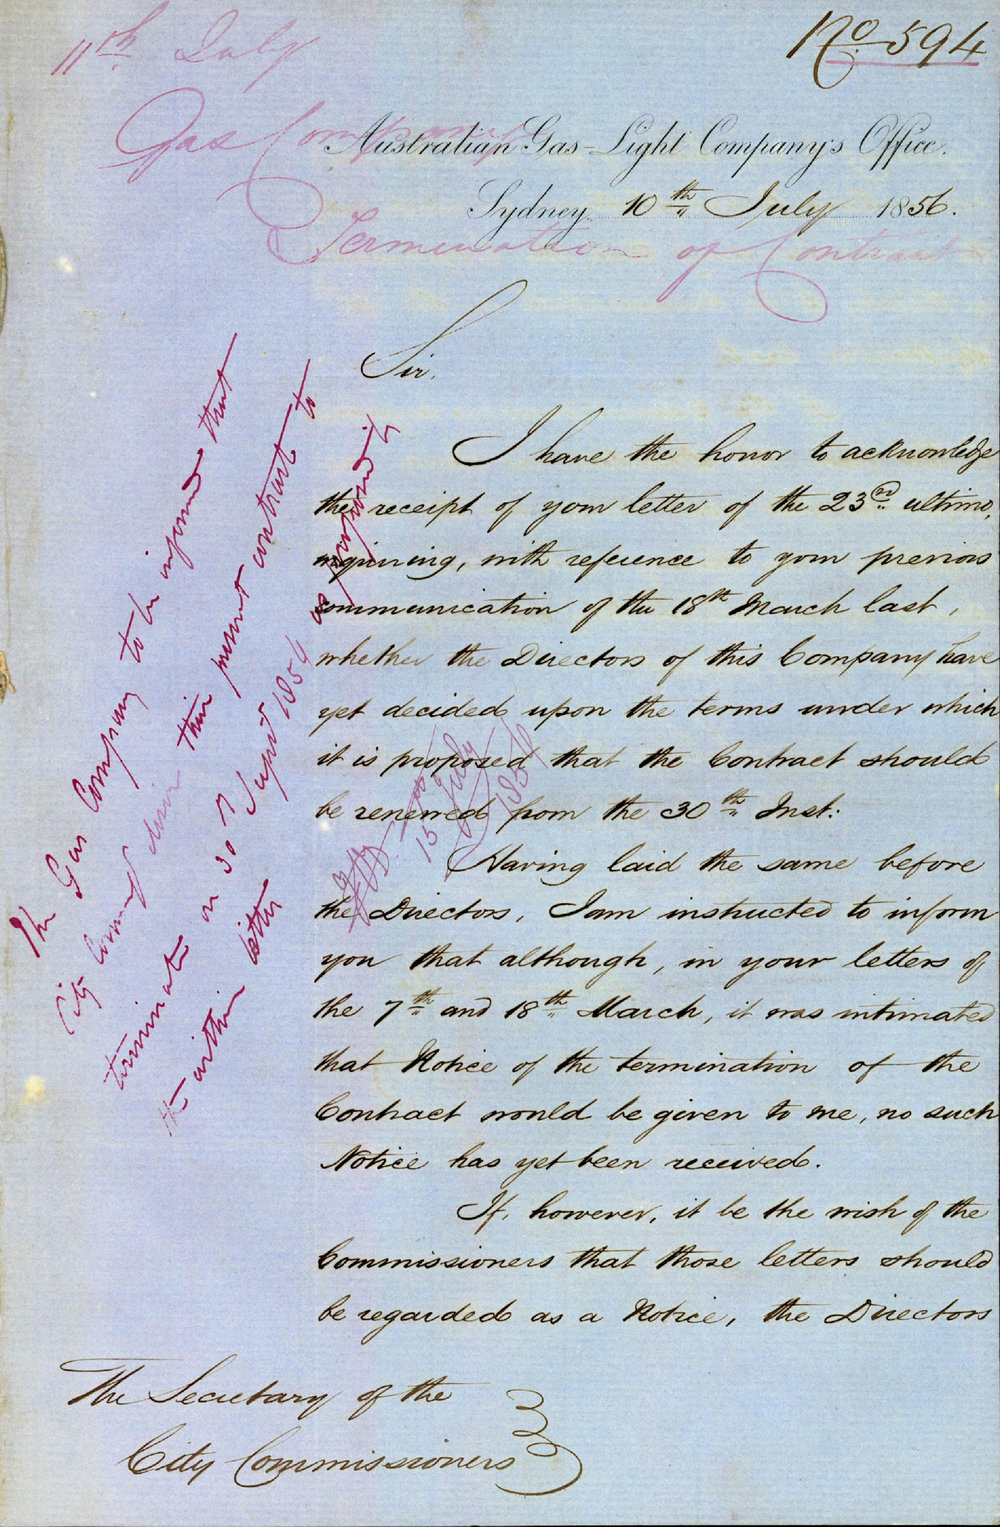 No. 594
11th July
Gas Company
Australian Gas-Light Company's Office.
Sydney 10th July 1856.
Termination of Contract
Sir.
I have the honor to acknowledge
the receipt of your letter of the 23rd ultimo,
inquiring, with reference to your previous
communication of the 18th March last,
whether the Directors of this Company have
yet decided upon the terms under which
it is proposed that the Contract should
be renewed from the 30th Inst:
Having laid the same before
the Directors, I am instructed to inform
you that although, in your letters of
the 7th and 18th March, it was intimated
that Notice of the termination of the
Contract would be given to me, no such
Notice has yet been received.
If, however, it be the wish of the
Commissioners that those letters should
be regarded as a Notice, the Directors
The Secretary of the
City Commissioners
The Gas Company to be informed that
City Commrs desire their present contract to
terminate on 30th Sept 1856 as proposed in
the within letter
15 July
1856